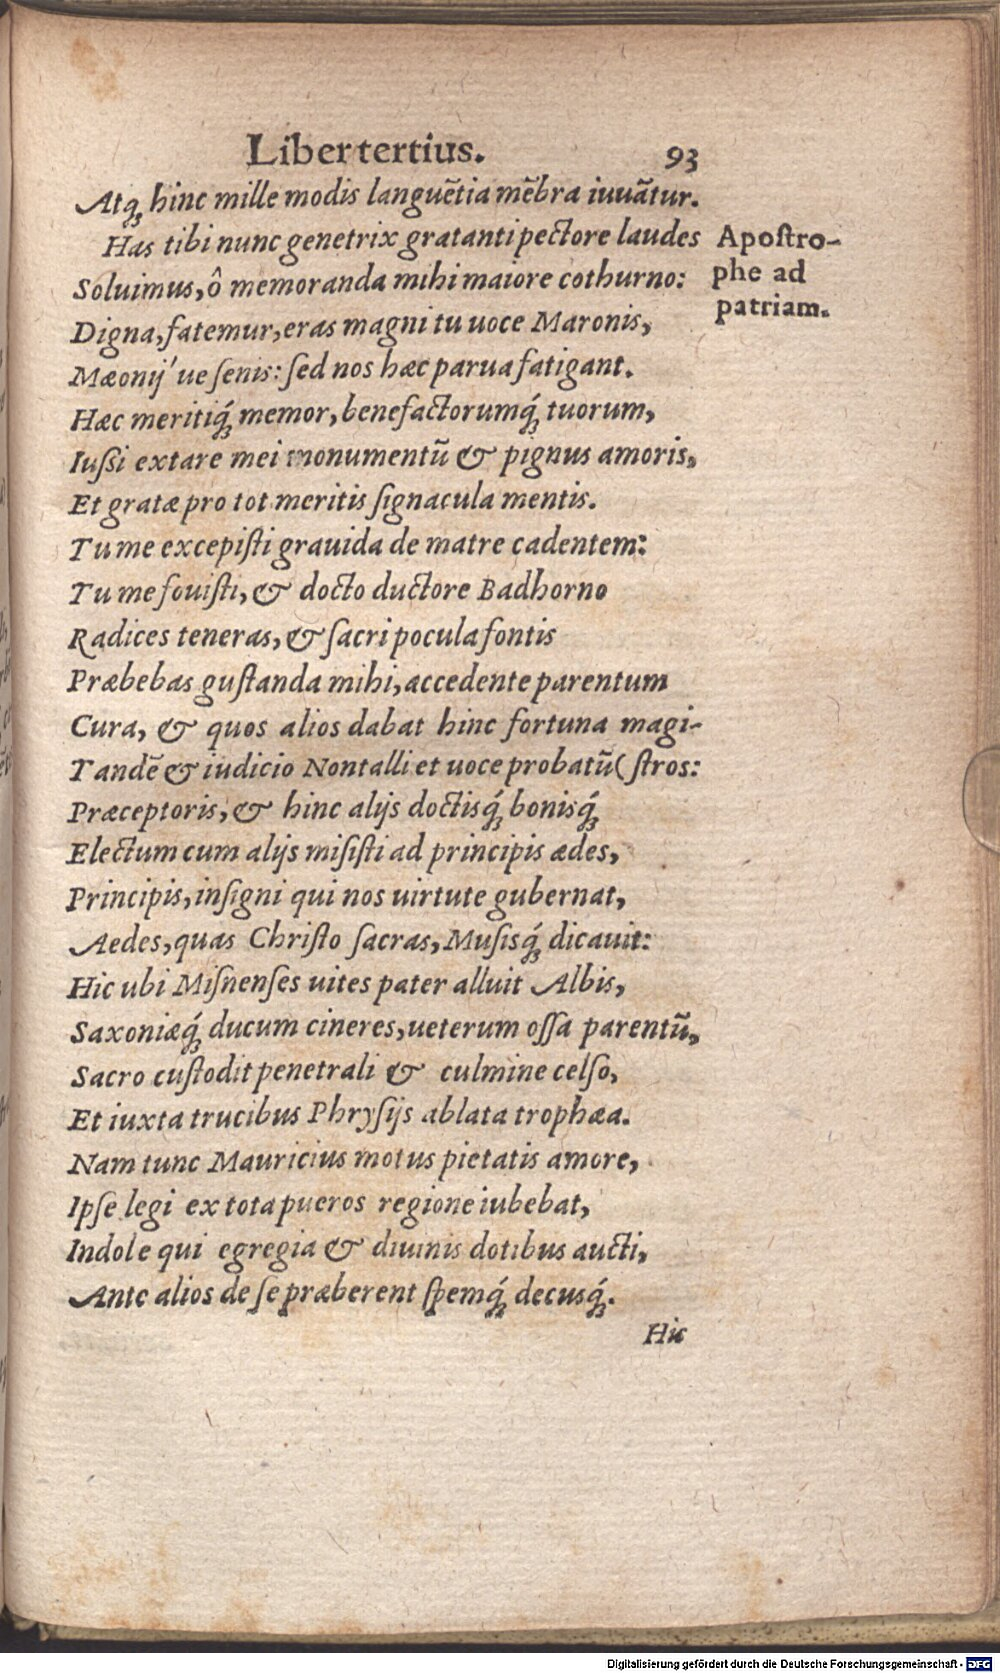 Liber tertius. 93
Atq; hinc mille modis languẽtia mẽbra iuuãtur.
Has tibi nunc genetrix gratanti pectore laudes
Apostro-
phe ad
patriam.
Soluimus, ô memoranda mihi maiore cothurno:
Digna, fatemur, eras magni tu uoce Maronis,
Mæonij'ue senis: sed nos hæc parua fatigant.
Hæc meritiq́; memor, benefactorumq́; tuorum,
Iussi extare mei monumentũ & pignus amoris,
Et gratæ pro tot meritis signacula mentis.
Tu me excepisti grauida de matre cadentem:
Tu me fouisti, & docto ductore Badhorno
Radices teneras, & sacri pocula fontis
Præbebas gustanda mihi, accedente parentum
Cura, & quos alios dabat hinc fortuna magi-
Tandẽ & iudicio Nontalli et uoce probatũ (stros:
Præceptoris, & hinc alijs doctisq́; bonisq́;
Electum cum alijs misisti ad principis ædes,
Principis, insigni qui nos uirtute gubernat,
Aedes, quas Christo sacras, Musisq́; dicauit:
Hic ubi Misnenses uites pater alluit Albis,
Saxoniæq́; ducum cineres, ueterum ossa parentũ,
Sacro custodit penetrali & culmine celso,
Et iuxta trucibus Phrysijs ablata trophæa.
Nam tunc Mauricius motus pietatis amore,
Ipse legi ex tota pueros regione iubebat,
Indole qui egregia & diuinis dotibus aucti,
Ante alios de se præberent spemq́; decusq́;.
Hic
Digitalisierung gefördert durch die Deutsche Forschungsgemeinschaft - DFG